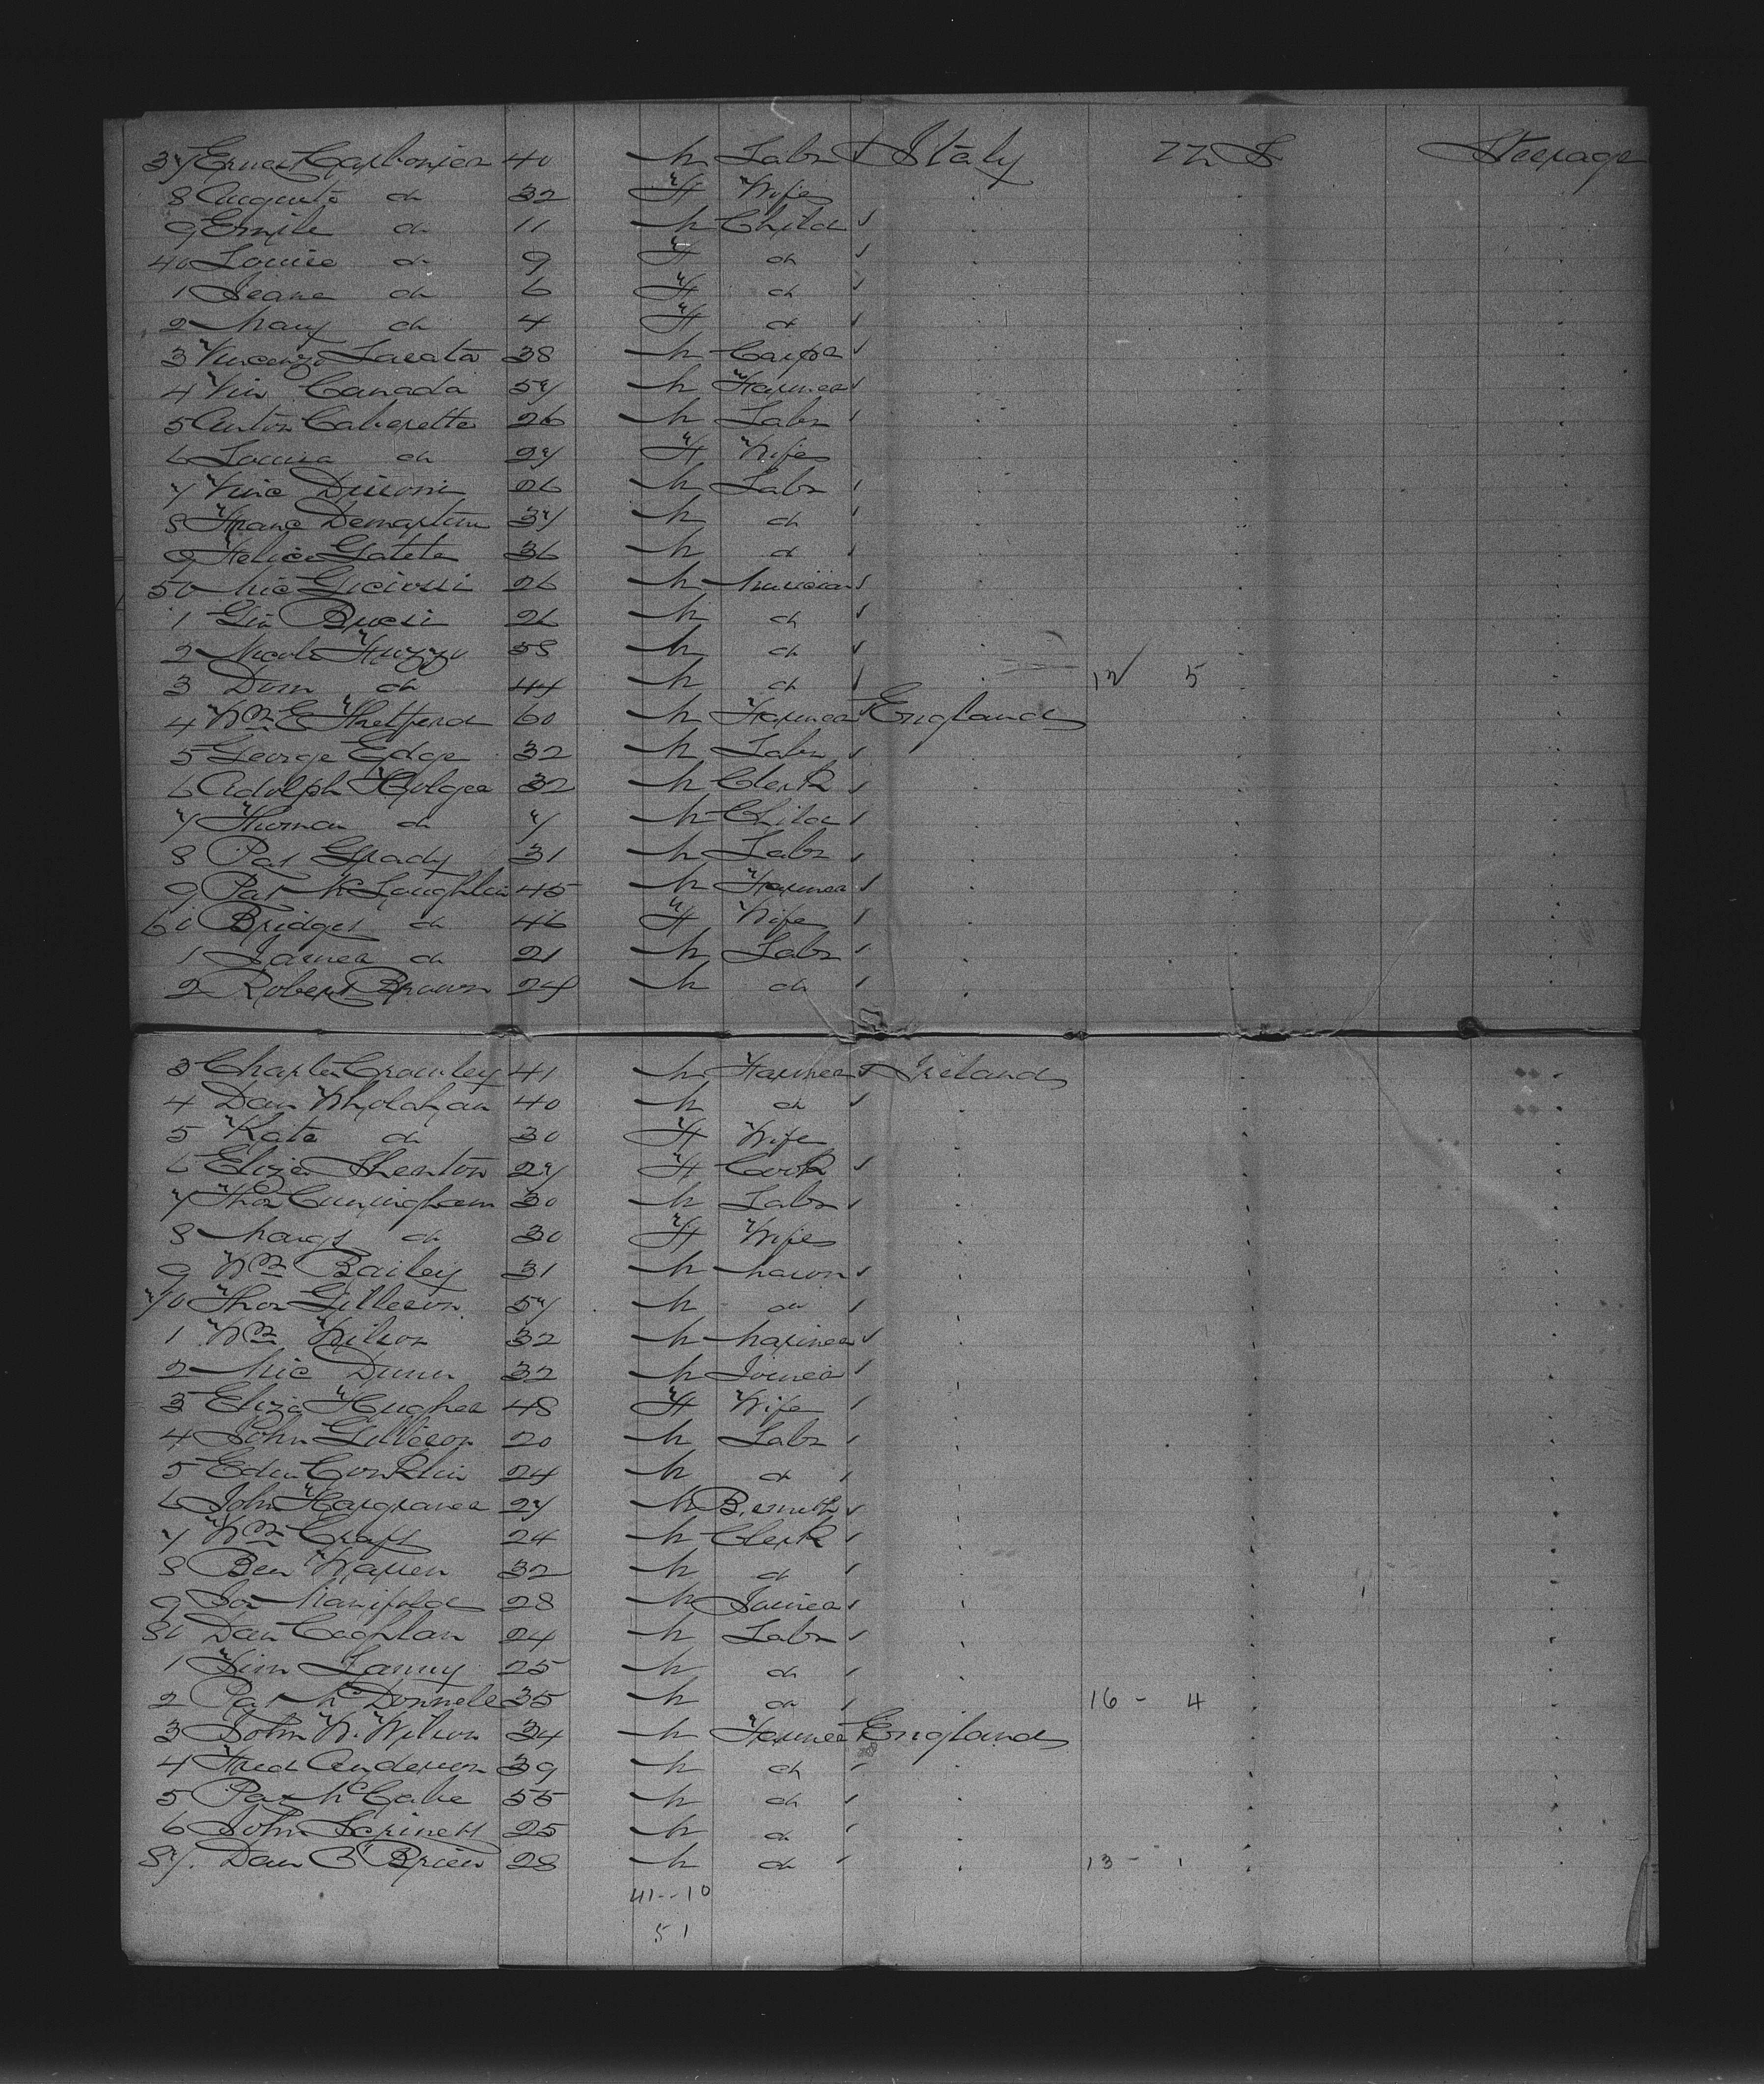 37 Ernest Carbonier 40 M Labr Italy U S Steerage
8 Auguste do 32 F Wife
9 Emile do 11 M Child
40 Louise do 9 F do
1 Jeane do 6 F do
2 Mary do 4 F do
3 Vincenzo Lacata 38 M Carpr
4 Vin Canada 57 M Farmer
5 Anton Caberette 26 M Labr
6 Louisa do 27 F Wife
7 Vinc Dironi 26 M Labr
8 Franc Demartini 37 M do
9 Felice Gatete 36 M do
50 Mic 26 M Musician
1 Gio Bucci 26 M do
2 Nicola Fuzzo 58 M do
3 Dom do 44 M do 12 5
4 Wm E Thetford 60 M Farmer England
5 George Edge 32 M Labr
6 Adolph Holger 32 M Clerk
7 Thomas do 7 M Child
8 Pat Grady 31 M Labr
9 Pat McLoughlin 45 M Farmer
60 Bridget do 46 F Wife
1 James do 21 M Labr
2 Robert Brown 24 M do
3 Charles Crowley 41 M Farmer Ireland
4 Dan Wholahan 40 M do
5 Kate do 30 F Wife
6 Eliza Shenton 27 F Cook
7 Thos Cuningham 30 M Labr
8 Margt do 30 F Wife
9 Wm Bailey 31 M Mason
70 Thos Gilleson 57 M do
1 Wm Wilson 32 M Mariner
2 Mic Dunn 32 M Joiner
3 Eliza Hughes 48 F Wife
4 John Gilleson 20 M Labr
5 Edw Conklin 24 M do
6 John Hargraves 27 M B.smith
7 Wm Craft 24 M Clerk
8 Ben Warren 32 M do
9 Jos Manifold 28 M Joiner
80 Dan Coghlan 24 M Labr
1 Jim Lanny 25 M do
2 Pat McDonnell 35 M do 16 - 4
3 John W. Wilson 34 M Farmer England
4 Fred Anderson 39 M do
5 Pat McCabe 55 M do
6 John 25 M do
87. Dan O'Brien 28 M do 13 - 1
41--10
51